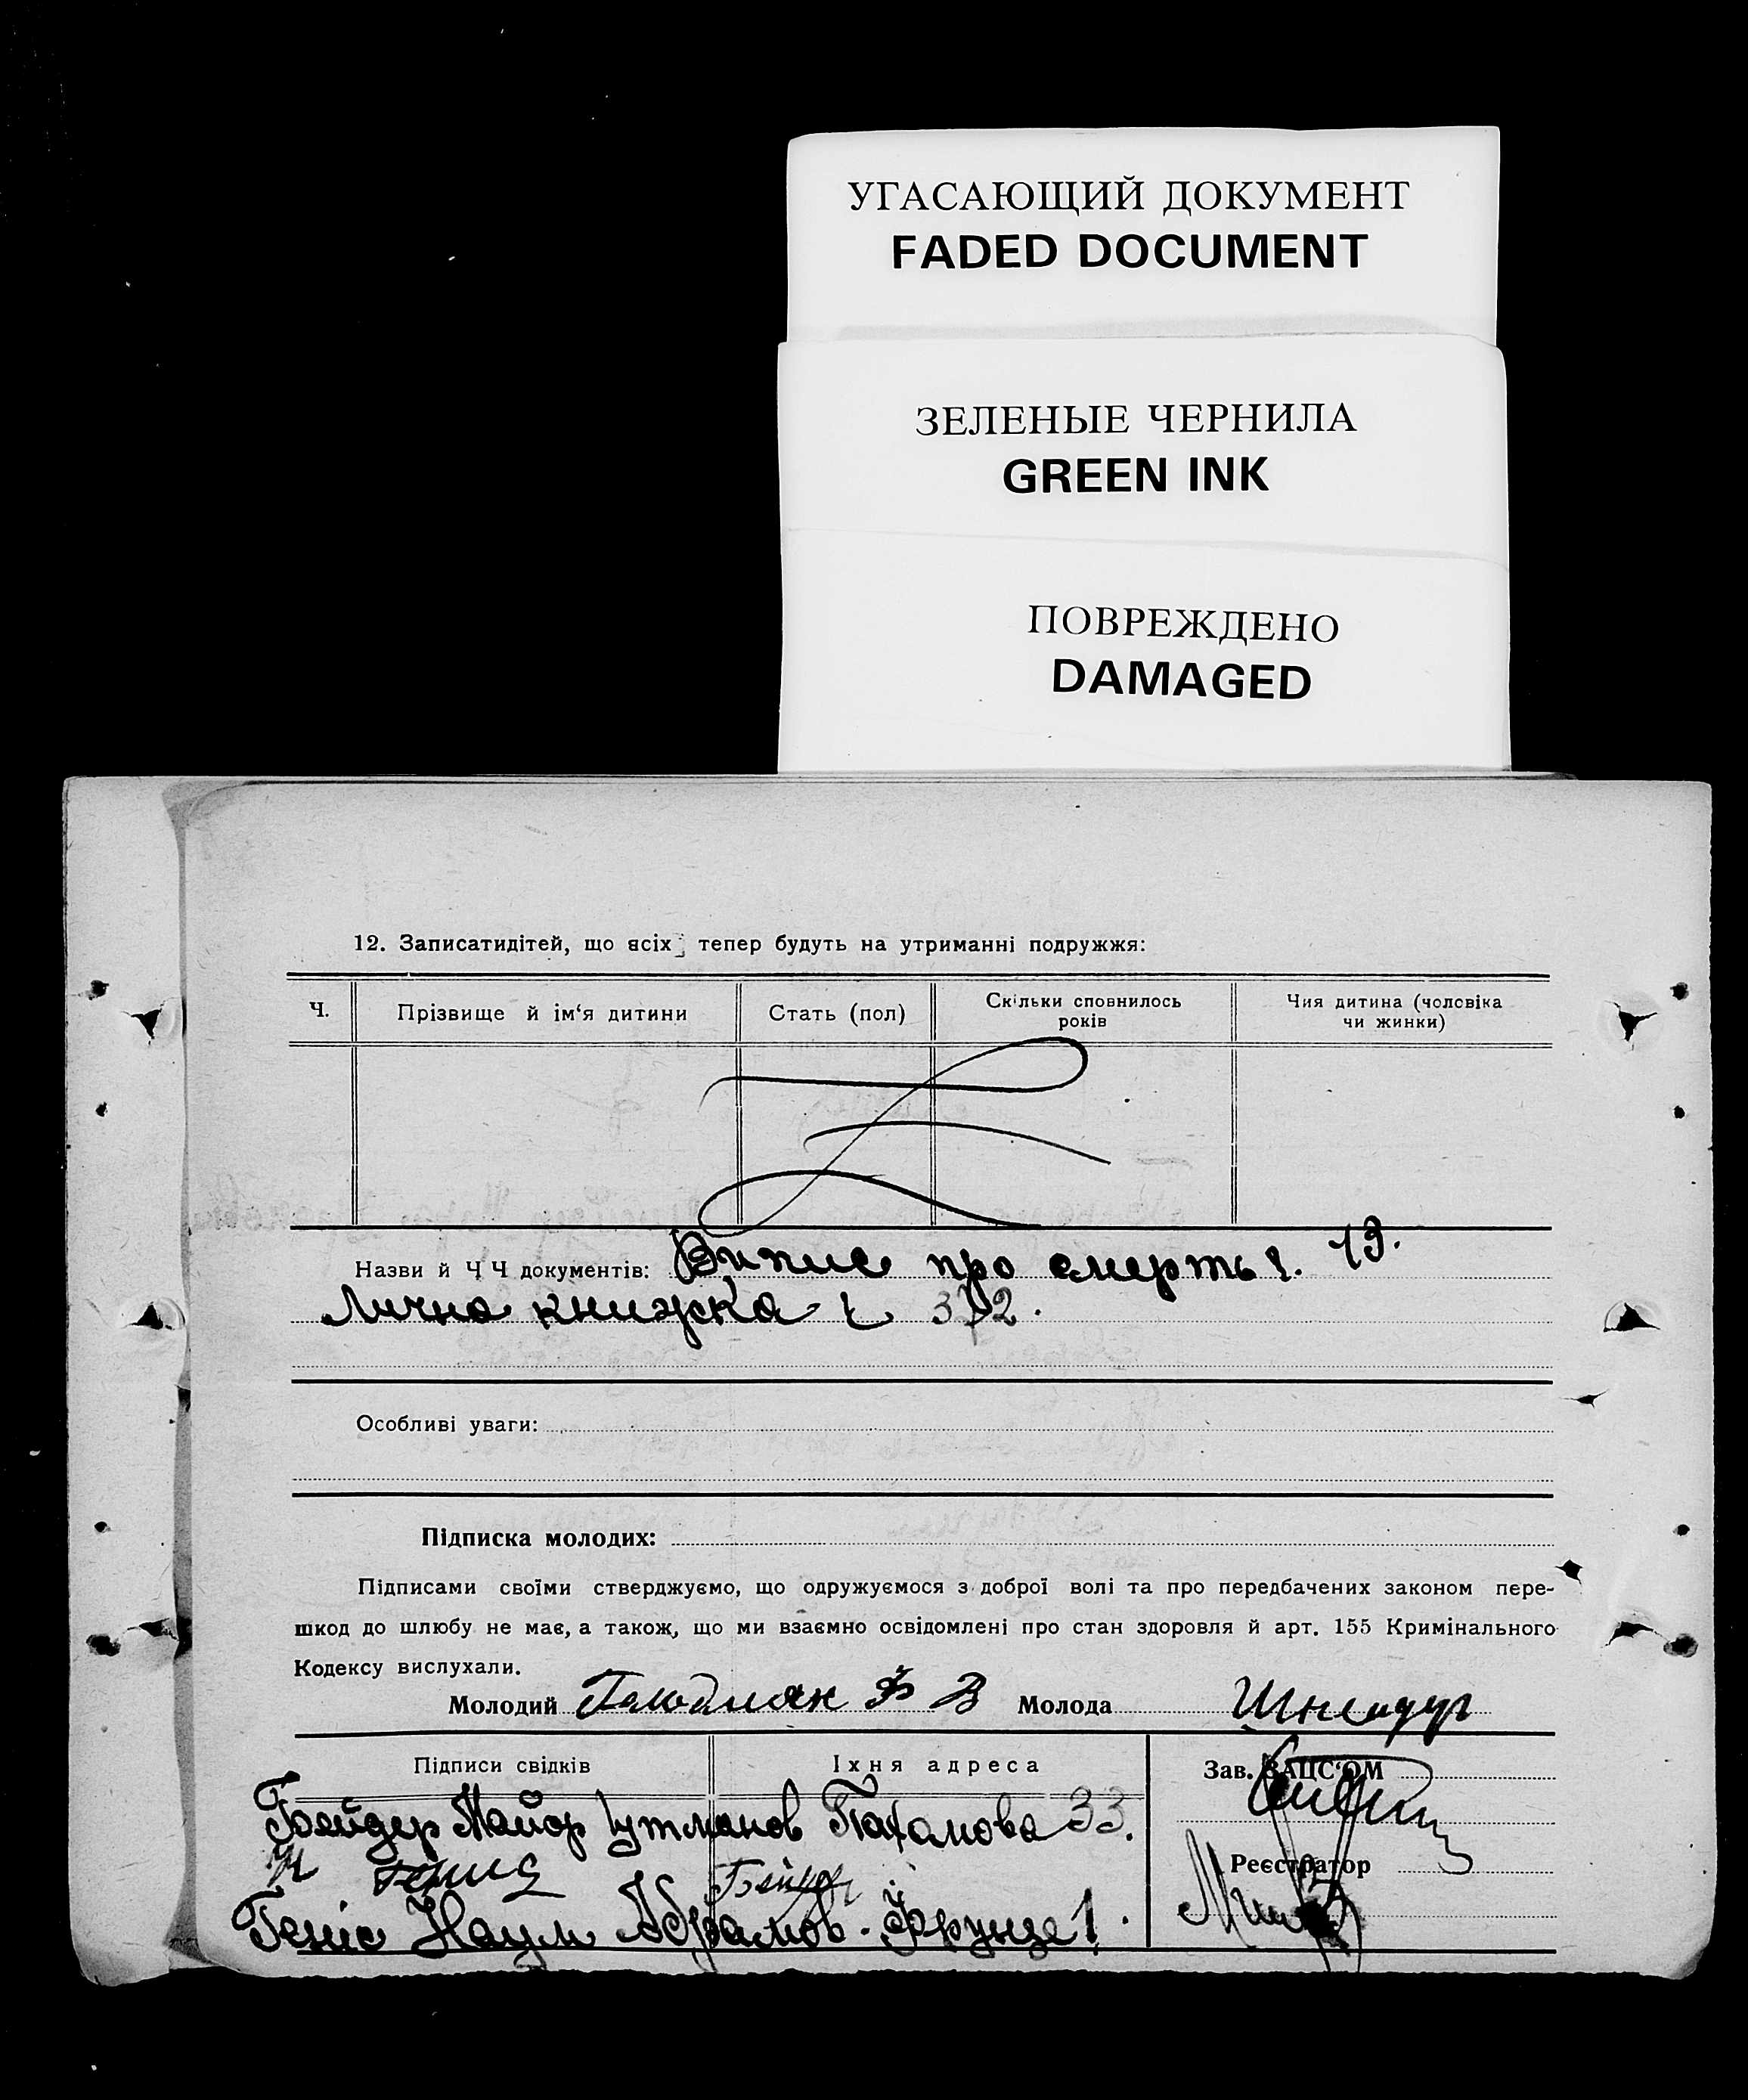 УГАСАЮЩИЙ ДОКУМЕНТ
FADED DOCUMENT
ЗЕЛЕНЫЕ ЧЕРНИЛА
GREEN INK
ПОВРЕЖДЕНО
DAMAGED
12. Записатидітей, що всіх тепер будуть на утриманні подружжя:
Ч.
Прізвище й ім‘я дитини
Стать (пол)
Скільки сповнилось
років
Чия дитина (чоловіка
чи жинки)
Назви й ЧЧ документів: Випис про смерть ч. 19.
Лична книжка ч 372.
Особливі уваги:
Підписка молодих:
Підписами своїми стверджуємо, що одружуємося з доброї волі та про передбачених законом пере-
шкод до шлюбу не має, а також, що ми взаємно освідомлені про стан здоровля й арт. 155 Кримінального
Кодексу вислухали.
Молодий Молода Шнейдер
Підписи свідків
Їхня адреса
Зав. ЗАЦС‘ОМ
Майор 33.
Реєстратор
Геніс Наум Абрамов. Фрунце 1.